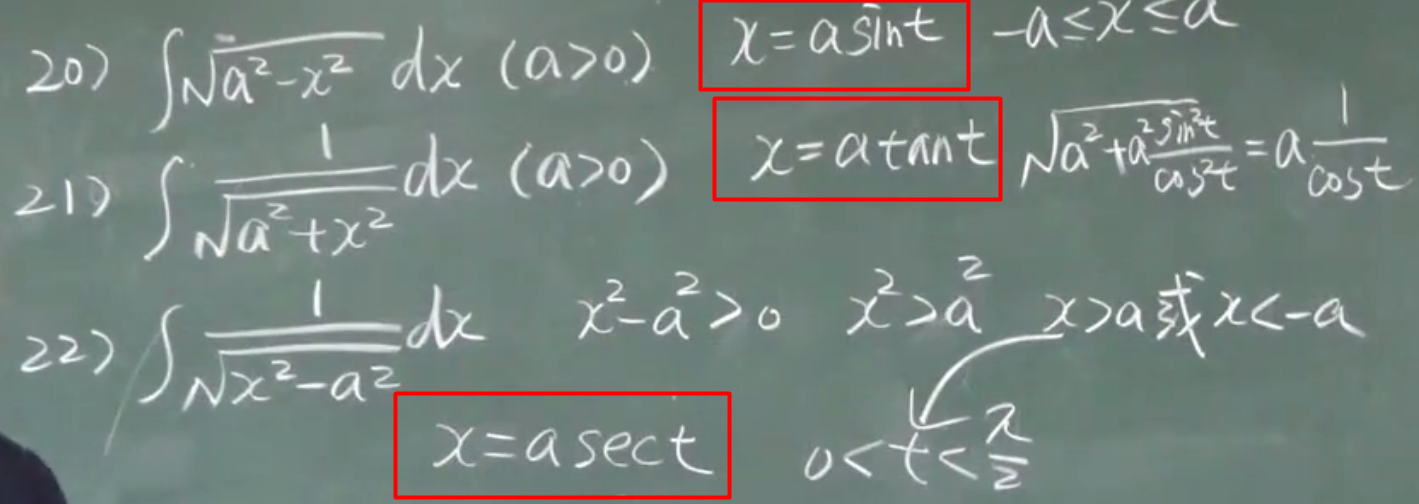 20) ∫√(a²-x²) dx (a>0) x=asint -a≤x≤a
21) ∫ 1/√(a²+x²) dx (a>0) x=atant √(a²+a² sin²t/cos²t) = a 1/cost
22) ∫ 1/√(x²-a²) dx x²-a²>0 x²>a² x>a或x<-a
x=asect 0<t<π/2